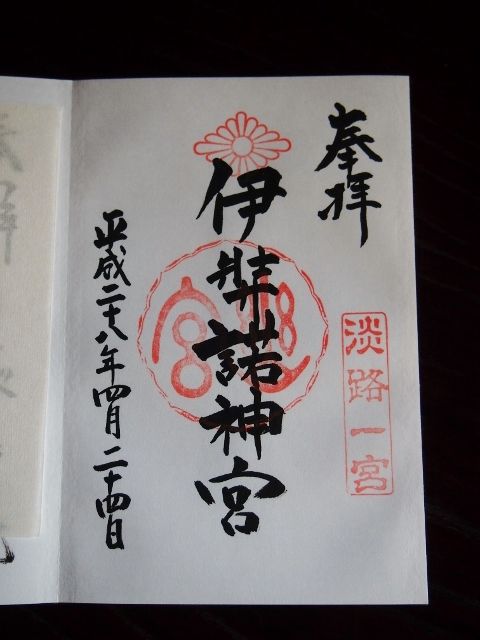 奉拝
淡路一宮
伊弉諾神宮
平成二十八年四月二十四日